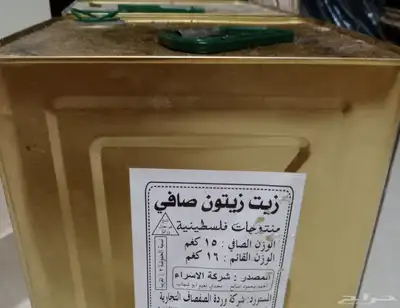 زيت زيتون صافي
منتوجات فلسطينية
الوزن الصافي : ١٥ كغم
الوزن القائم : ١٦ كغم
المصدر : شركة الاسراء
المستورد: شركة وردة الصفصاف التجارية
حراج